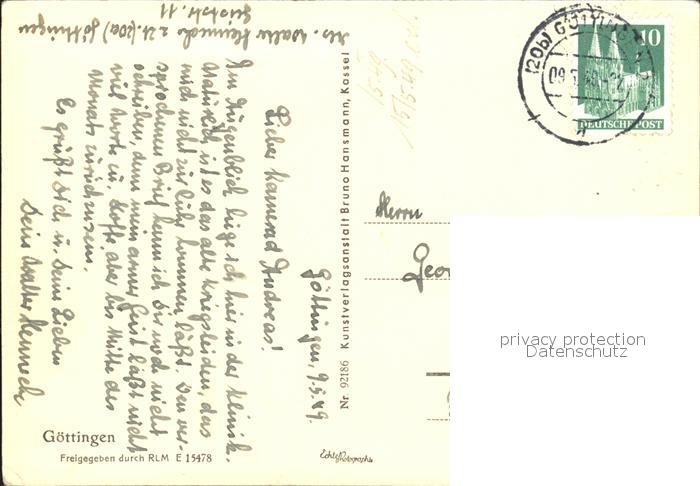 Abs. Walter Henneck z. Zt. (20a) Göttingen
Geiststr. 11
Göttingen, 9.5.49.
Lieber Kamerad Andreas!
Im Augenblick liege ich hier in der Klinik.
Natürlich ist es das alte Kriegsleiden, das
mich nicht zur Ruhe kommen läßt. Den ver-
sprochenen Brief kann ich Dir noch nicht
schreiben, denn mein armer Geist läßt nicht
viel Worte zu. Hoffe aber bis Mitte des
Monats zurückzusein.
Es grüßt Dich u. Deine Lieben
Dein Walter Henneck
Göttingen
Freigegeben durch RLM E 15478
Nr. 92186 Kunstverlagsanstalt Bruno Hansmann, Kassel
Echte Photographie
(20b) GÖTTINGEN
10
DEUTSCHE POST
Herrn
Geor
privacy protection
Datenschutz